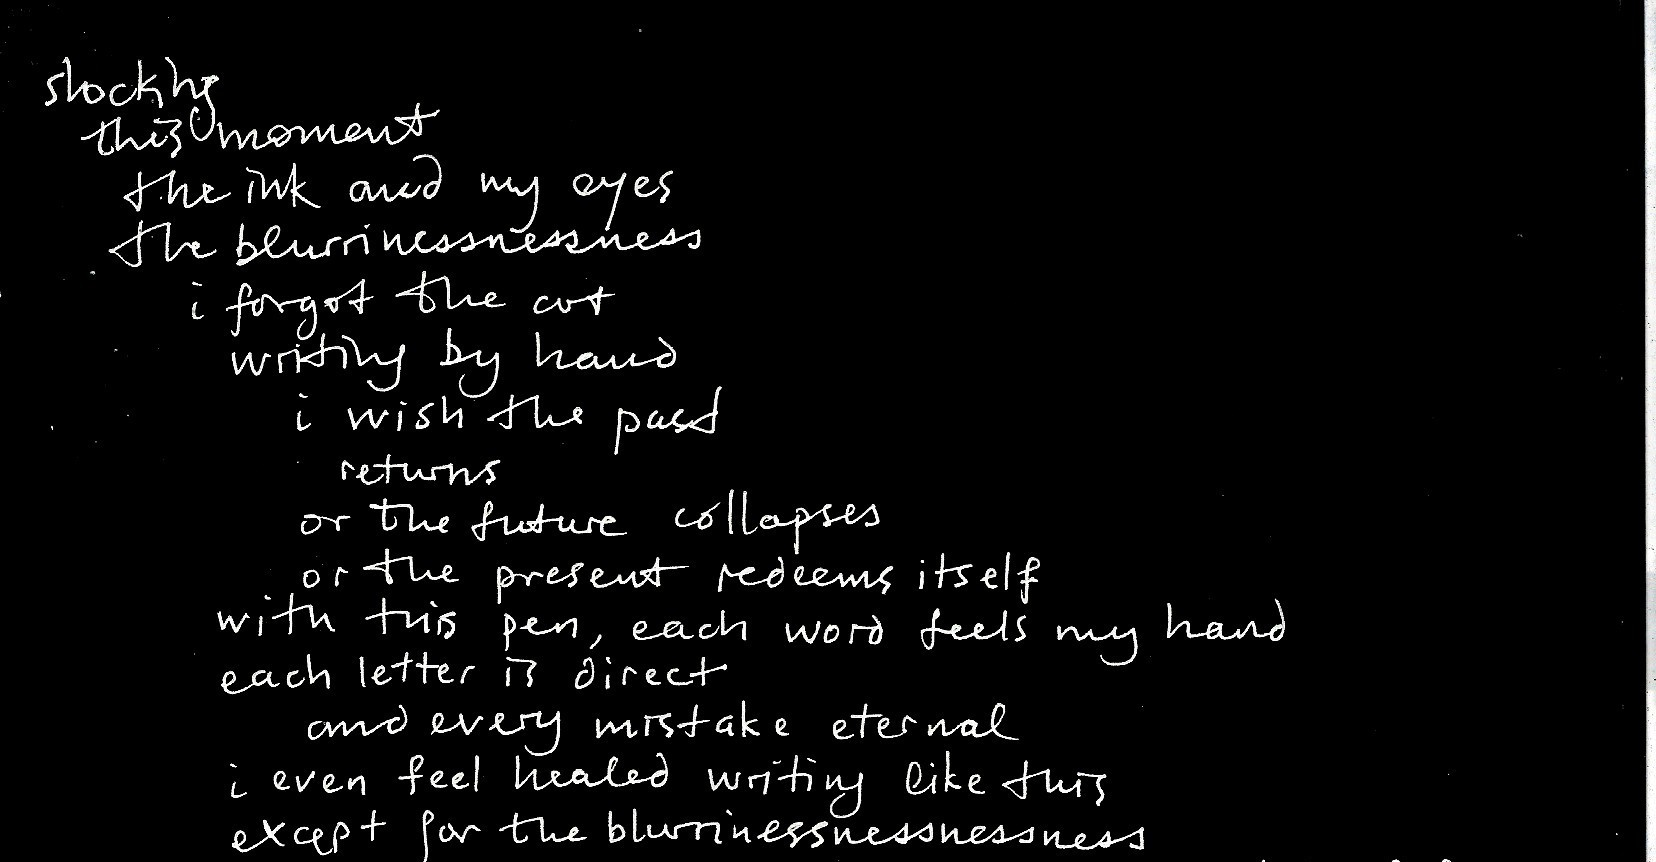 this moment
the ink and my eyes
the blurrinessnessness
i forgot the cut
writing by hand
i wish the past
returns
or the future collapses
or the present redeems itself
with this pen, each word feels my hand
each letter is direct
and every mistake eternal
i even feel healed writing like this
except for the blurrinessnessnessness